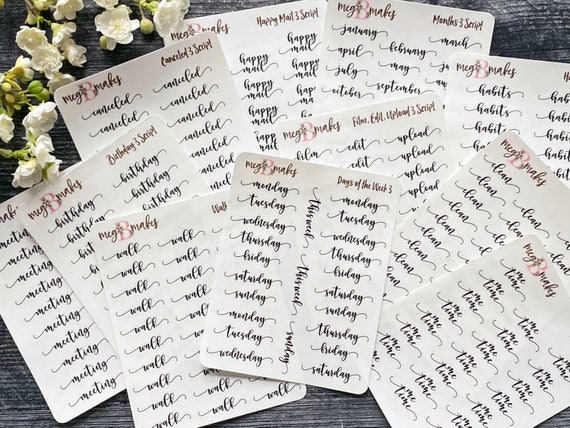 megBmakes
Canceled 3 Script
canceled canceled
canceled canceled
canceled
canceled
megBmakes
Happy Mail 3 Script
happy mail happy mail
happy mail happy mail
happy mail happy mail
happy mail
megBmakes
Months 3 Script
january february march
april may june
july
october
megBmakes
habits habits
habits habits
habits
habits
megBmakes
Birthday 3 Script
birthday birthday
birthday birthday
birthday birthday
birthday
megBmakes
Film, Edit, Upload 3 Script
film edit upload
edit upload
upload
upload
meeting
meeting
meeting
meeting
meeting
meeting
meeting
meeting
megBmakes
walk walk walk
walk walk walk
walk walk walk
walk walk walk
walk walk walk
walk walk walk
walk walk walk
walk walk walk
megBmakes
Days of the Week 3
monday monday
tuesday tuesday
wednesday wednesday
thursday thursday
friday friday
saturday saturday
sunday sunday
monday thursday
tuesday friday
wednesday saturday
this week
this week
sunday
megBmakes
clean clean clean
clean clean clean
clean clean clean
clean clean
clean
megBmakes
me time me time me time
me time me time me time
me time me time me time
me time me time me time
me time me time me time